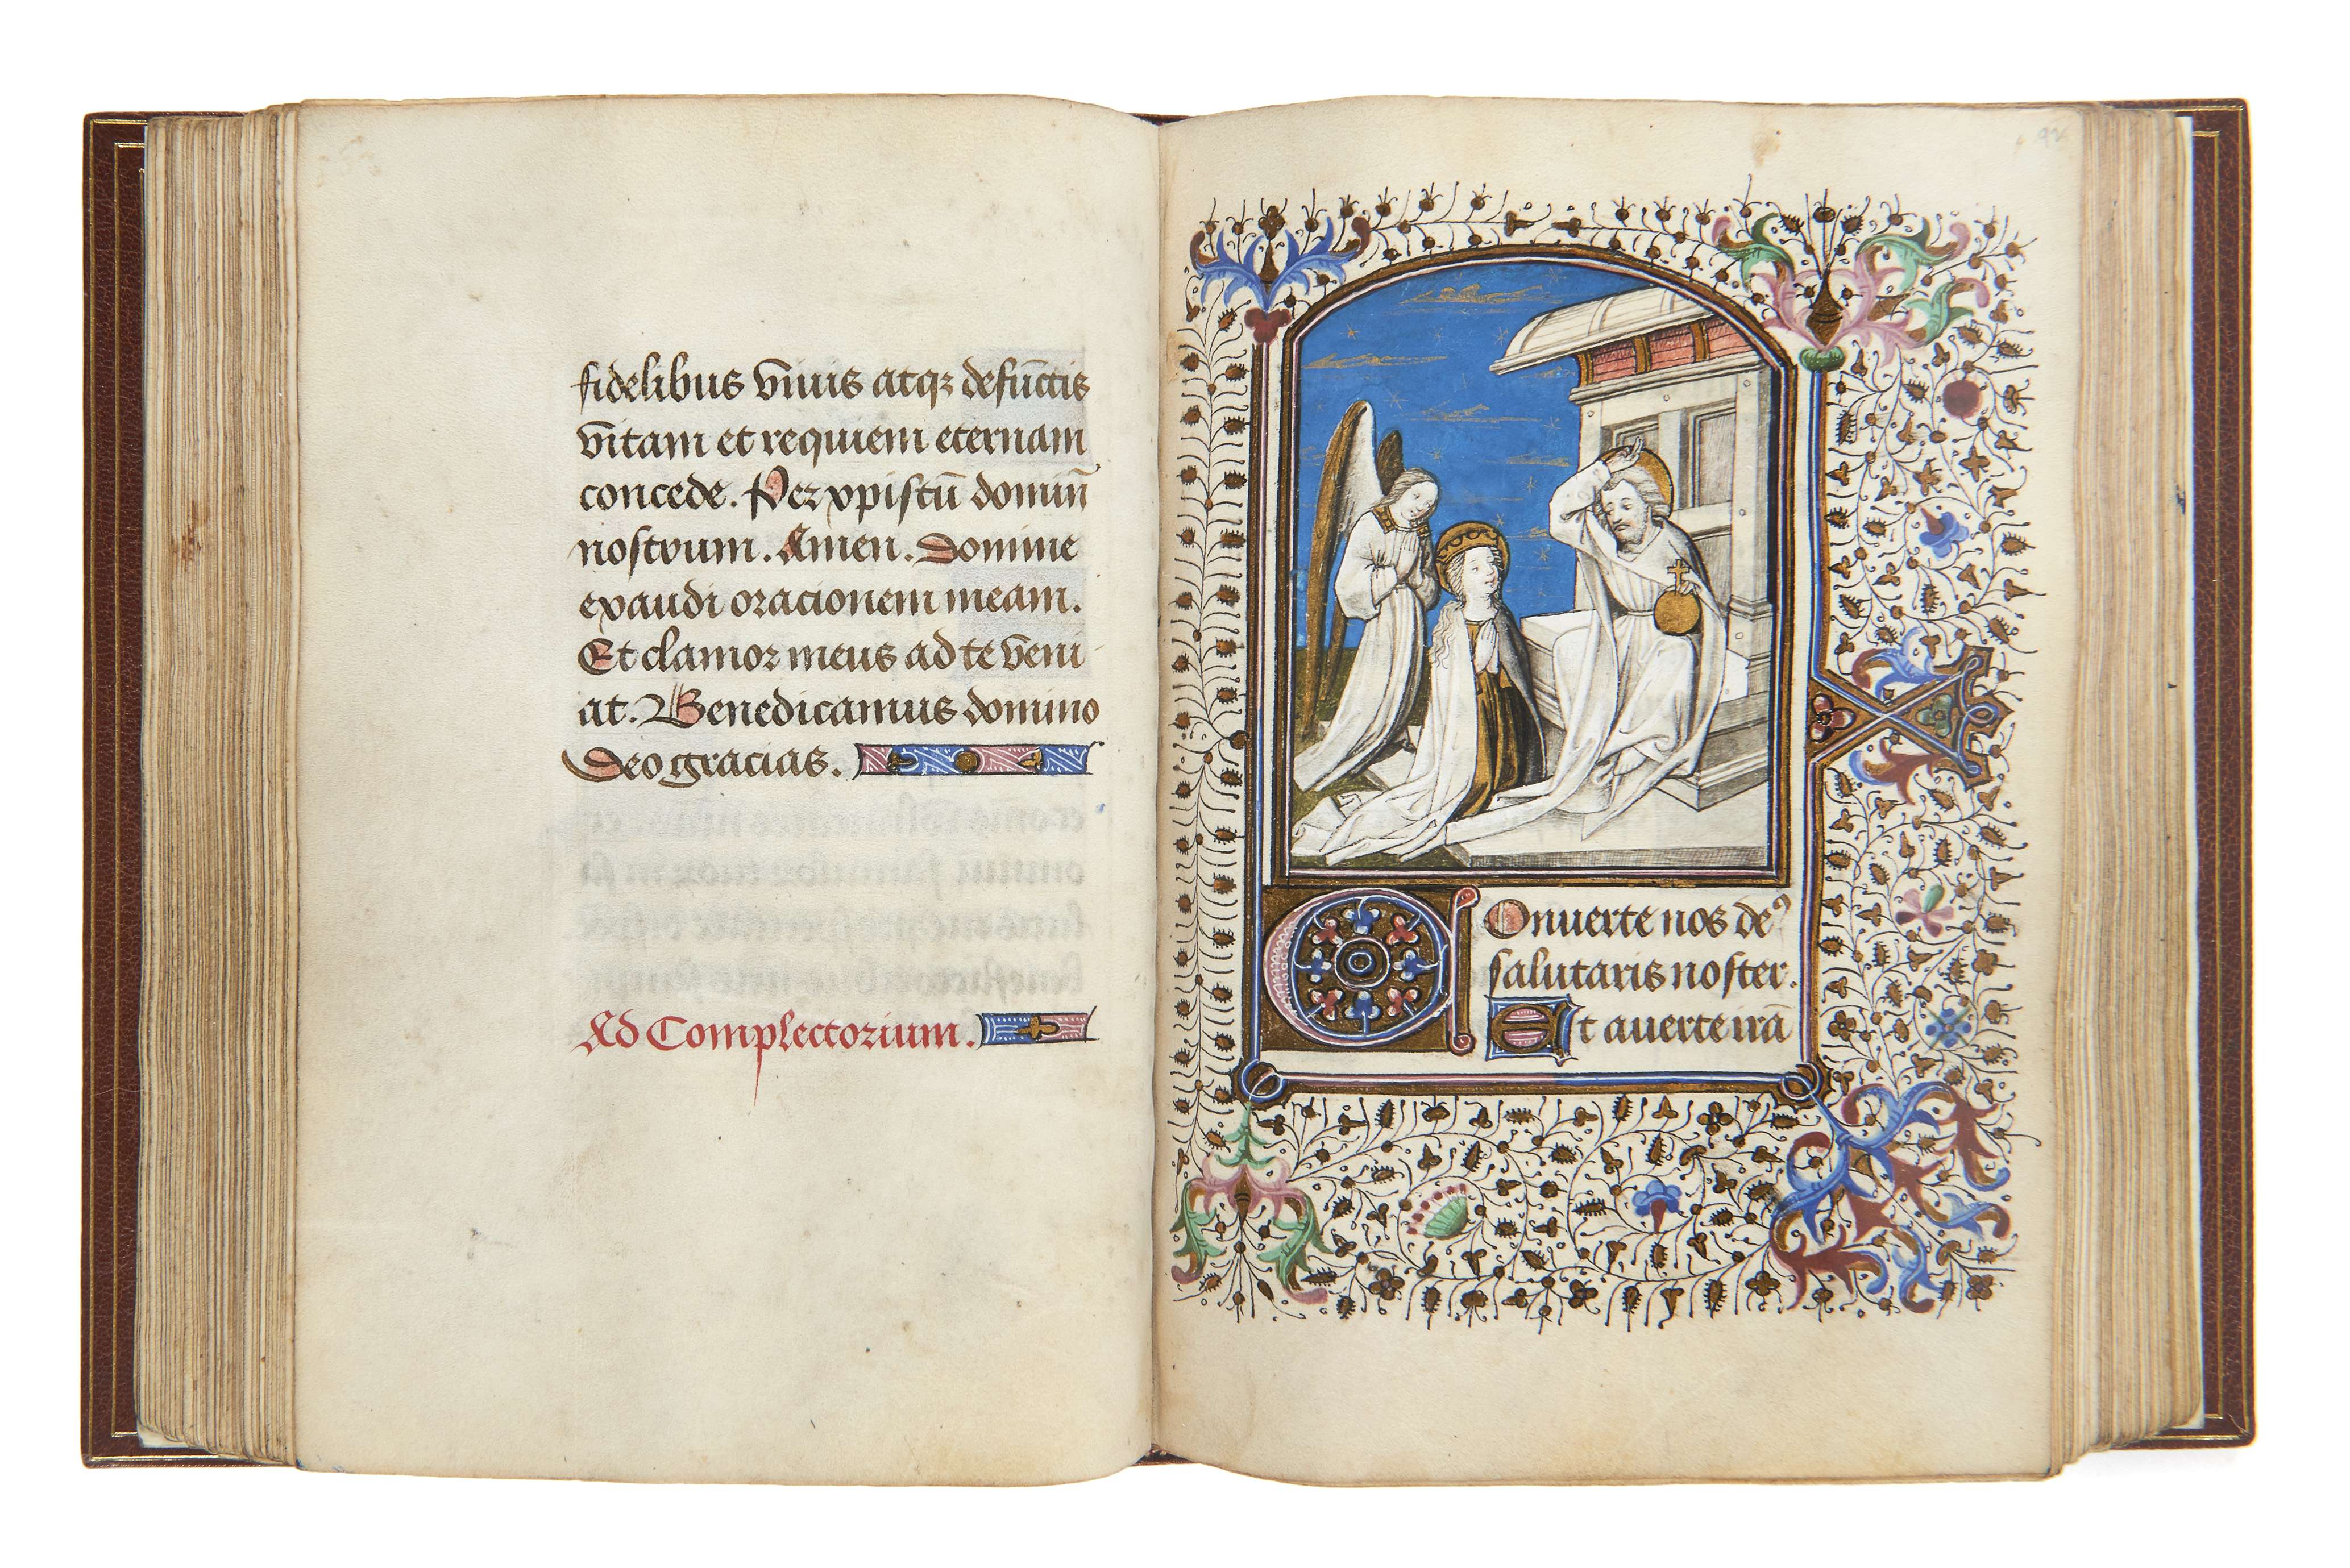 fidelibus viuis atqꝫ defūctis
vitam et requiem eternam
concede. Per xpistū dominū
nostrum. Amen. Domine
exaudi oracionem meam.
Et clamor meus ad te veni
at. Benedicamus domino
Deo gracias.
Ad Complectorium.
92
COnuerte nos deꝰ
salutaris noster.
Et auerte irā